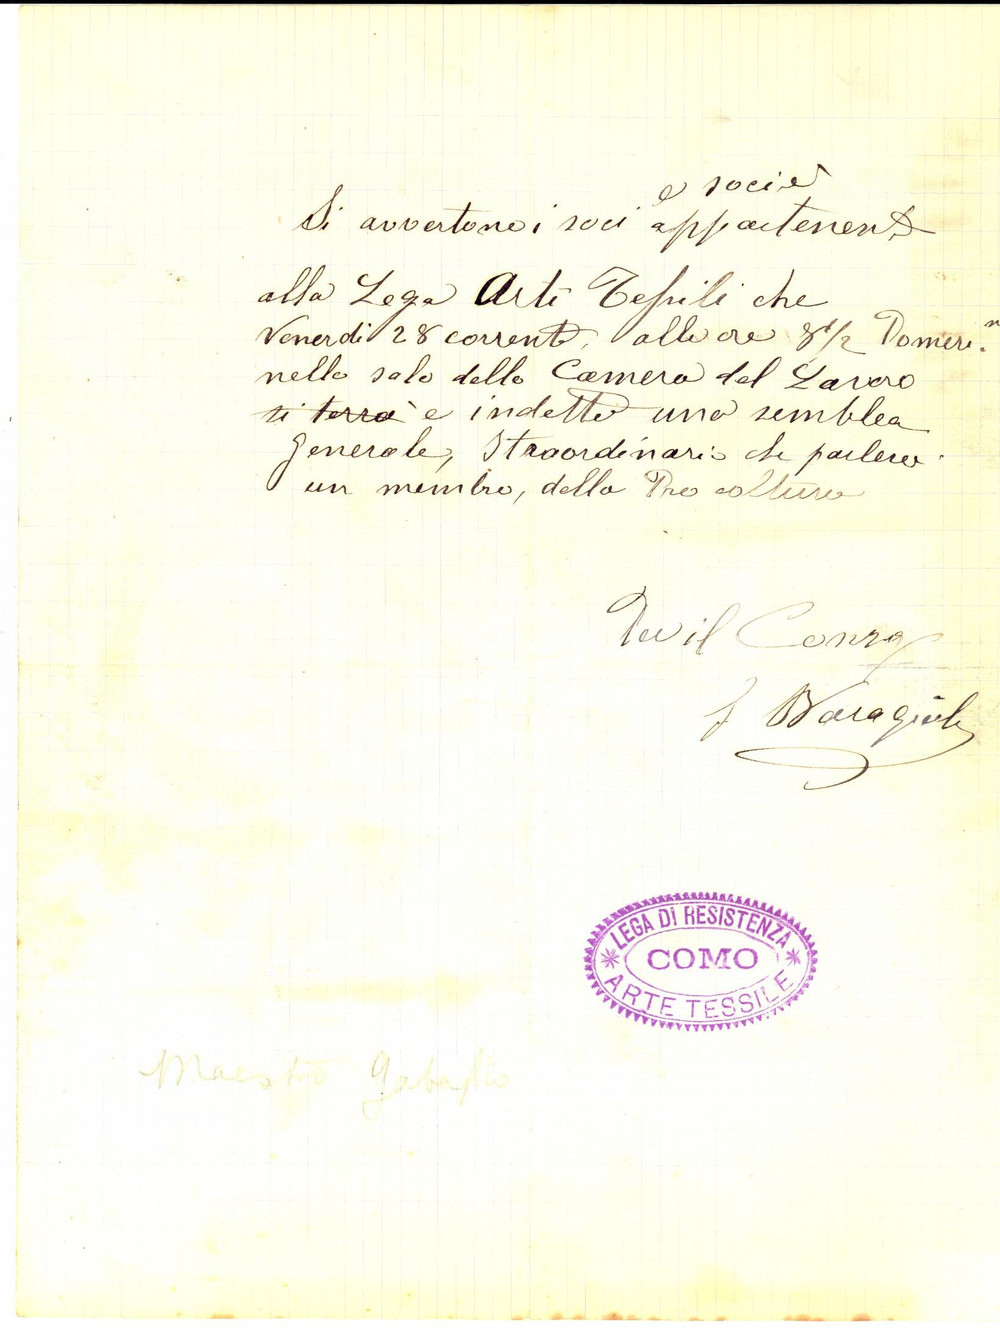 e socie
Si avvertono i soci appartenenti
alla Lega Arti Tessili che
Venerdi 28 corrente, alle ore 8 1/2 Pomeri.n
nella sala della Camera del Lavoro
si terrà è indetta una semblea
Generale, Straordinaria che parlera
un membro, della Pro coltura
Per il Consig
J Baragiola
LEGA DI RESISTENZA
COMO
ARTE TESSILE
Maestro Gabaglio